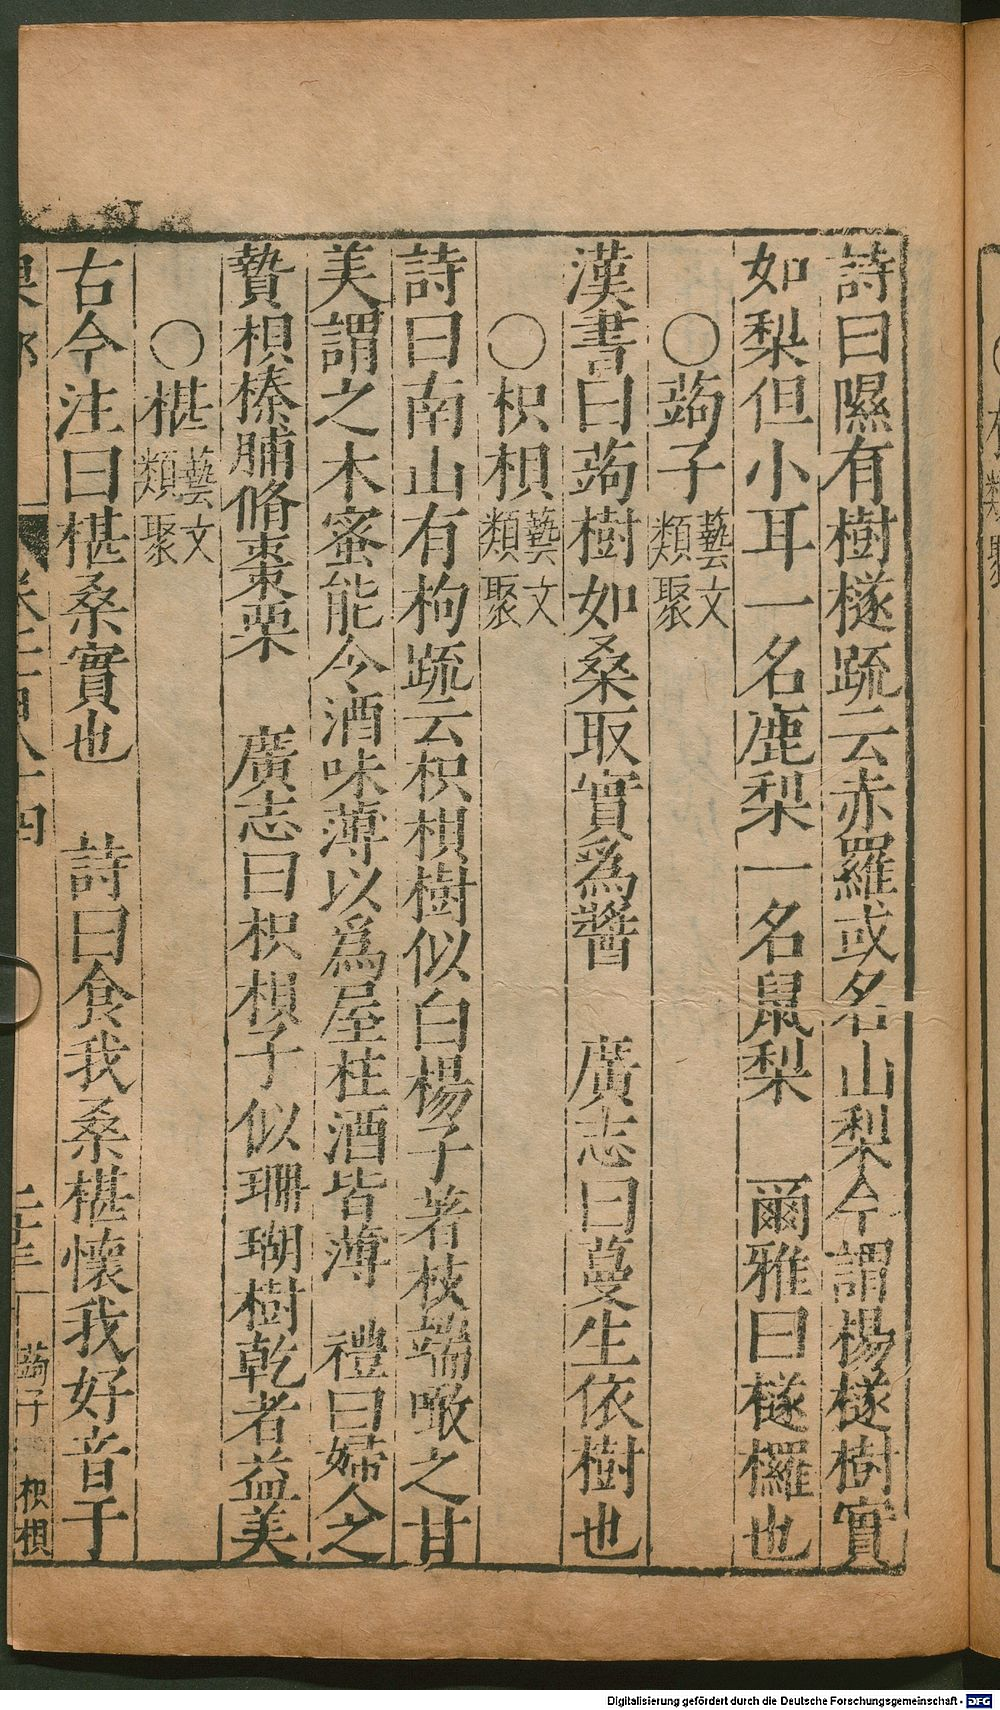 詩曰隰有樹檖疏云赤羅或名山梨今謂楊檖樹實
如梨但小耳一名鹿梨一名鼠梨　爾雅曰檖欏也
○蒟子藝文類聚
漢書曰蒟樹如桑取實爲醬　廣志曰蔓生依樹也
○枳椇藝文類聚
詩曰南山有枸疏云枳椇樹似白楊子著枝端噉之甘
美謂之木蜜能令酒味薄以爲屋柱酒皆薄　禮曰婦人之
贄椇榛脯脩棗栗　廣志曰枳椇子似珊瑚樹乾者益美
○椹藝文類聚
古今注曰椹桑實也　詩曰食我桑椹懷我好音于
蒟子　枳椇
Digitalisierung gefördert durch die Deutsche Forschungsgemeinschaft - DFG